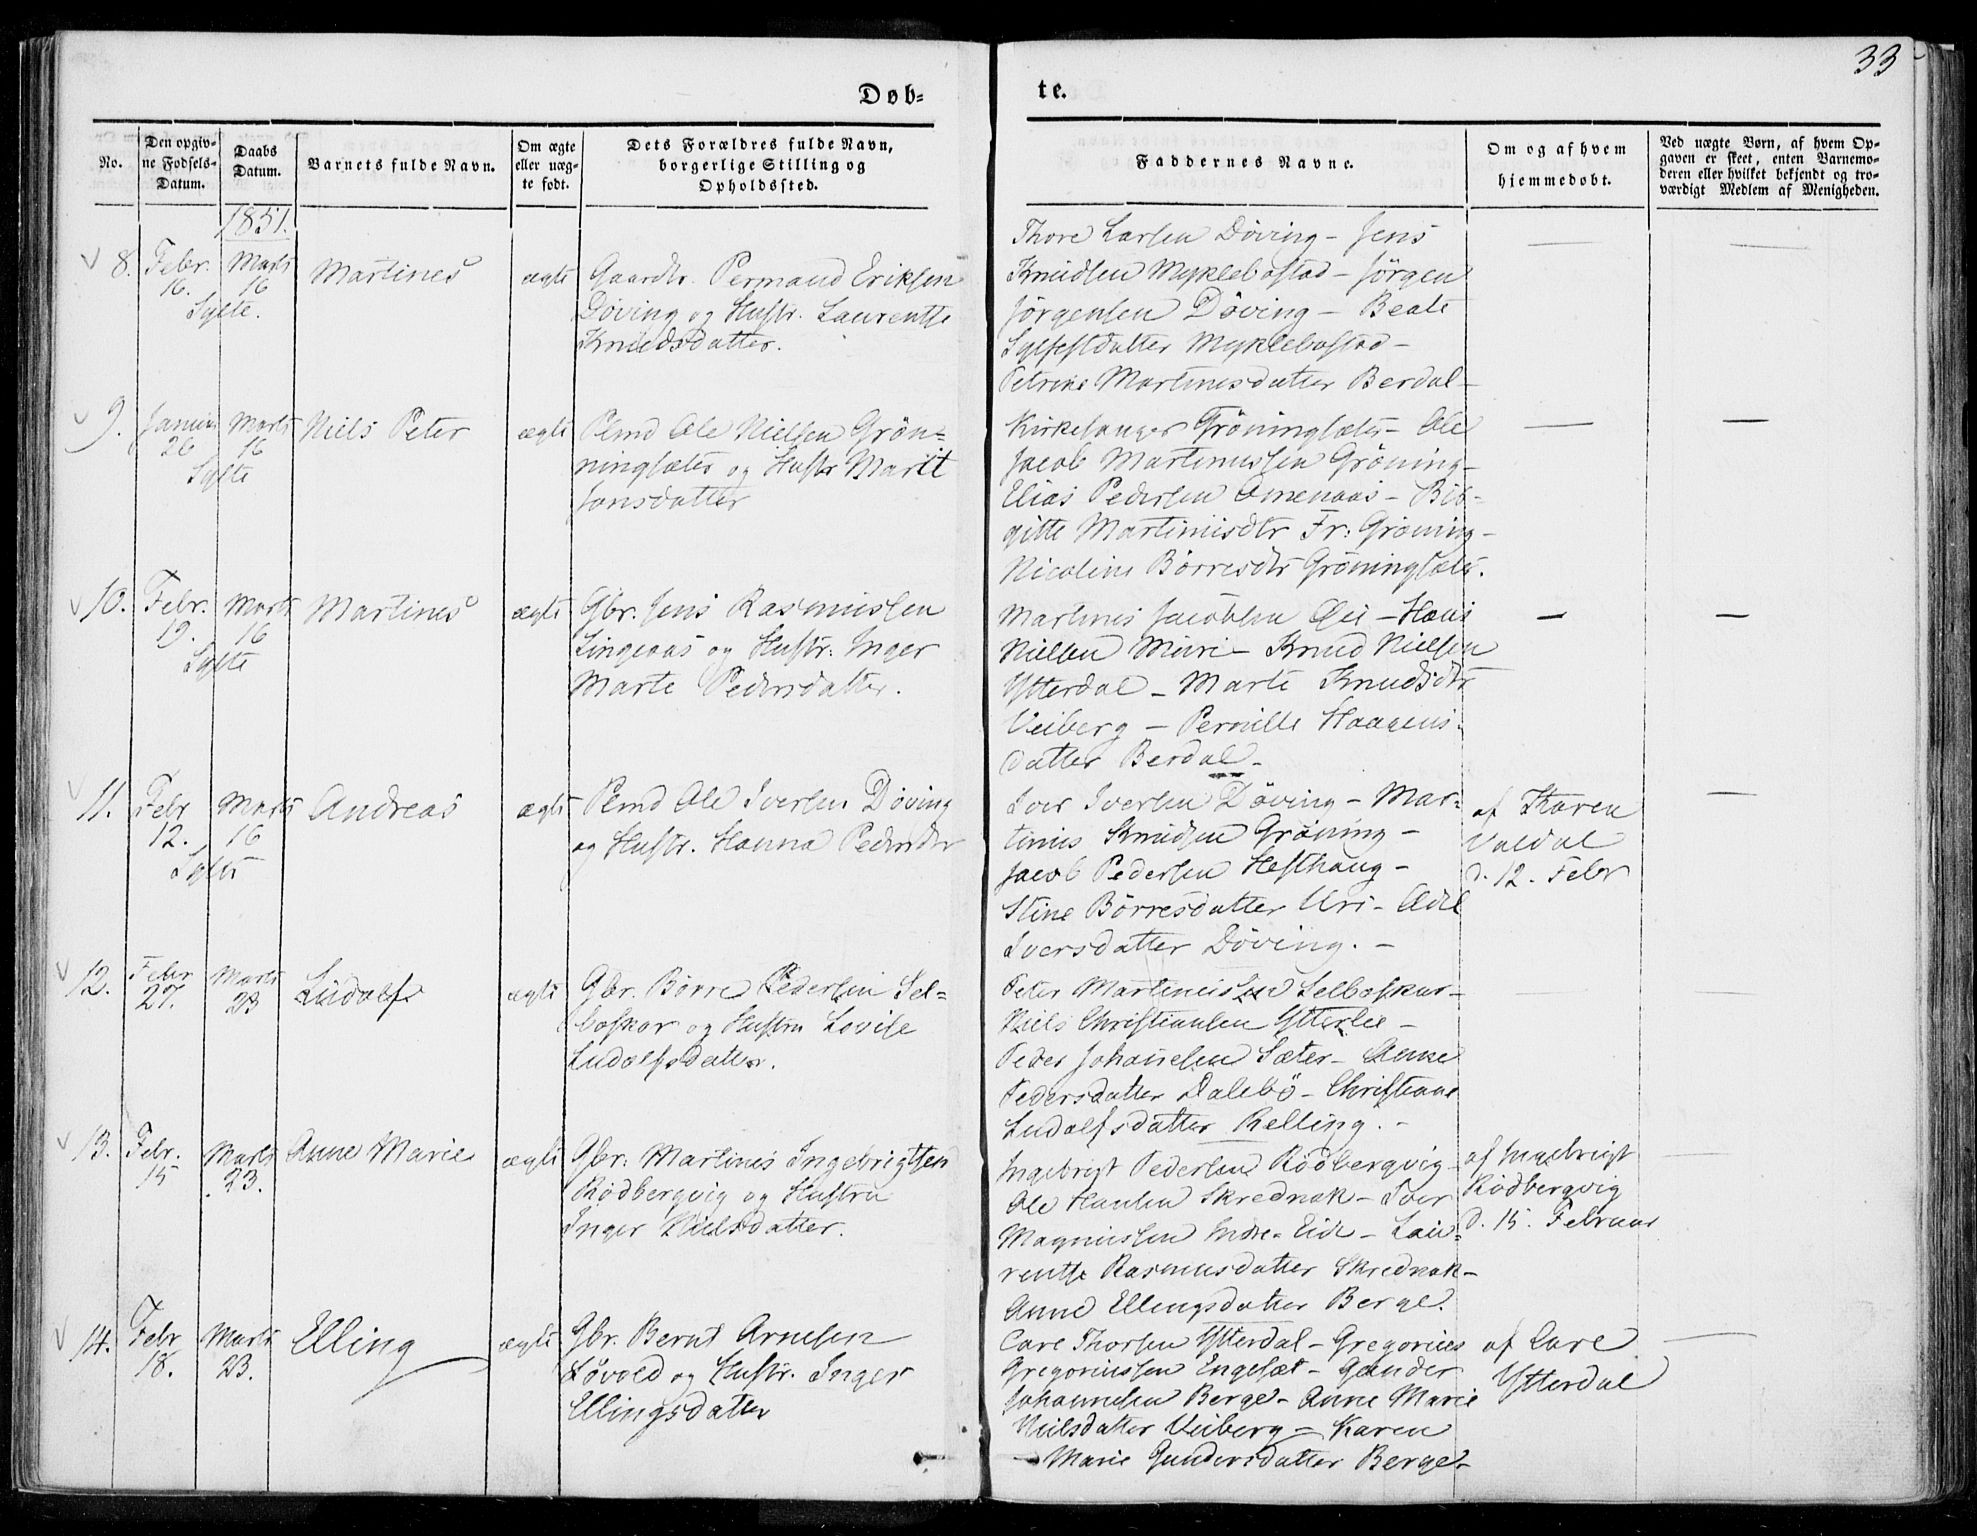 33
Døb-
te.
No.
Den opgiv-
ne Fødsels-
Datum.
Daabs
Datum.
Barnets fulde Navn.
Om ægte
eller uæg-
te født.
Dets Forældres fulde Navn,
borgerlige Stilling og
Opholdssted.
Faddernes Navne.
Om og af hvem
hjemmedøbt.
Ved uægte Børn, af hvem Op-
gaven er skeet, enten Barnemo-
deren eller hvilket bekjendt og tro-
værdigt Medlem af Menigheden.
1851.
8.
Febr.
16.
Marts
16
Sylte.
Martines
ægte
Gaardbr. Permand Eriksen
Döving og Hustr. Laurentse
Knudsdatter.
Thore Larsen Döving - Jens
Knudsen Myklebostad - Jörgen
Jörgensen Döving - Beate
Sylfestdatter Myklebostad -
Petrine Martinusdatter Berdal -
9.
Januar
26
Marts
16
Sylte
Niels Peter
ægte
Plmd Ole Nielsen Grön-
ningsæter og Hustr Marit
Jonsdatter
Kirkesanger Gröningsæter - Ole
Jacob Martinussen Gröning -
Elias Pedersen Omenaas - Bir-
gitte Martinusdtr Fr: Gröning -
Nicoline Börresdtr Gröningsæter.
10.
Febr.
19.
Marts
16
Sylte
Martines
ægte
Gbr. Jens Rasmussen
Lingeaas og Hustr: Inger
Marte Pedersdatter.
Martines Jacobsen Øie - Hans
Nielsen Muri - Knud Nielsen
Ytterdal - Marte Knudsdtr
Veiberg - Pernille Haagens-
datter Berdal -
11.
Febr
12.
Marts
16
Sylte
Andreas
ægte
Plmd Ole Iversen Döving
og Hustr. Hanna Pedersdtr
Iver Iversen Döving - Mar-
tinus Knudsen Gröning -
Jacob Pedersen Hesthaug -
Stine Börresdatter Uri - Odel
Iversdatter Döving. -
af Thoren
Valdal
d. 12. Febr
12.
Febr
27.
Marts
23
Ludolf
ægte
Gbr. Börre Pedersen Sel-
boskar og Hustru Lovise
Ludolfsdatter.
Peter Martinussen Selboskar -
Niels Christiansen Ytterlie -
Peder Johannesen Sæter - Anne
Pedersdatter Dalebö - Christiane
Ludolfsdatter Relling. -
13.
Febr.
15
Marts
23.
Anne Marie
ægte
Gbr: Martines Ingebrigtsen
Rödbergvig og Hustru
Inger Nielsdatter.
Ingebrigt Pedersen Rödbergvig -
Ole Hansen Skrednak - Iver
Magnussen Indre-Eide - Lau-
rentse Rasmusdatter Skrednak -
Anne Ellingsdatter Berge.
af Ingebrigt
Rödbergvig
d. 15. Februar
14.
Febr
18.
Marts
23.
Elling
ægte
Gbr. Bernt Arnesen
Lövold og Hustr. Inger
Ellingsdatter
Care Thorsen Ytterdal - Gregorius
Gregoriussen Engeset - Gunder
Johannesen Berge - Anne Marie
Nielsdatter Veiberg - Karen
Marie Gundersdatter Berge -
af Care
Ytterdal